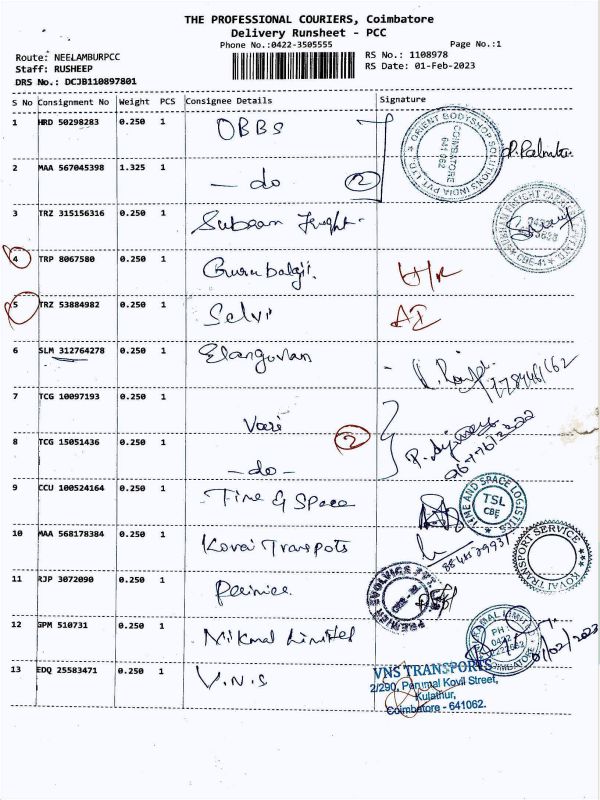 THE PROFESSIONAL COURIERS, Coimbatore
Delivery Runsheet - PCC
Phone No.:0422-3505555
Page No.:1
Route: NEELAMBURPCC
RS No.: 1108978
Staff: RUSHEEP
RS Date: 01-Feb-2023
DRS No.: DCJB110897801
S No Consignment No Weight PCS Consignee Details Signature
1 HRD 50298283 0.250 1 OBBS
ORIENT BODYSHOP SOLUTIONS INDIA PVT. LTD.
COIMBATORE
641 062
2 MAA 567045398 1.325 1 - do 2
3 TRZ 315156316 0.250 1 Subean Freight
CBE-41
4 TRP 8067580 0.250 1
5 TRZ 53884982 0.250 1 Selvi
6 SLM 312764278 0.250 1 Elangovan
7 TCG 10097193 0.250 1
8 TCG 15051436 0.250 1 - do - 2
9 CCU 100524164 0.250 1 Time & Space
TIME AND SPACE LOGISTICS
TSL
CBE
10 MAA 568178384 0.250 1 Kovai Transpots
KOVAI TRANSPORT SERVICE
11 RJP 3072090 0.250 1
12 GPM 510731 0.250 1 Limited
PH
0422
COIMBATORE
01/02/2023
13 EDQ 25583471 0.250 1 V.N.S
VNS TRANSPORTS
2/290, Perumal Kovil Street,
Kulathur,
Coimbatore - 641062.